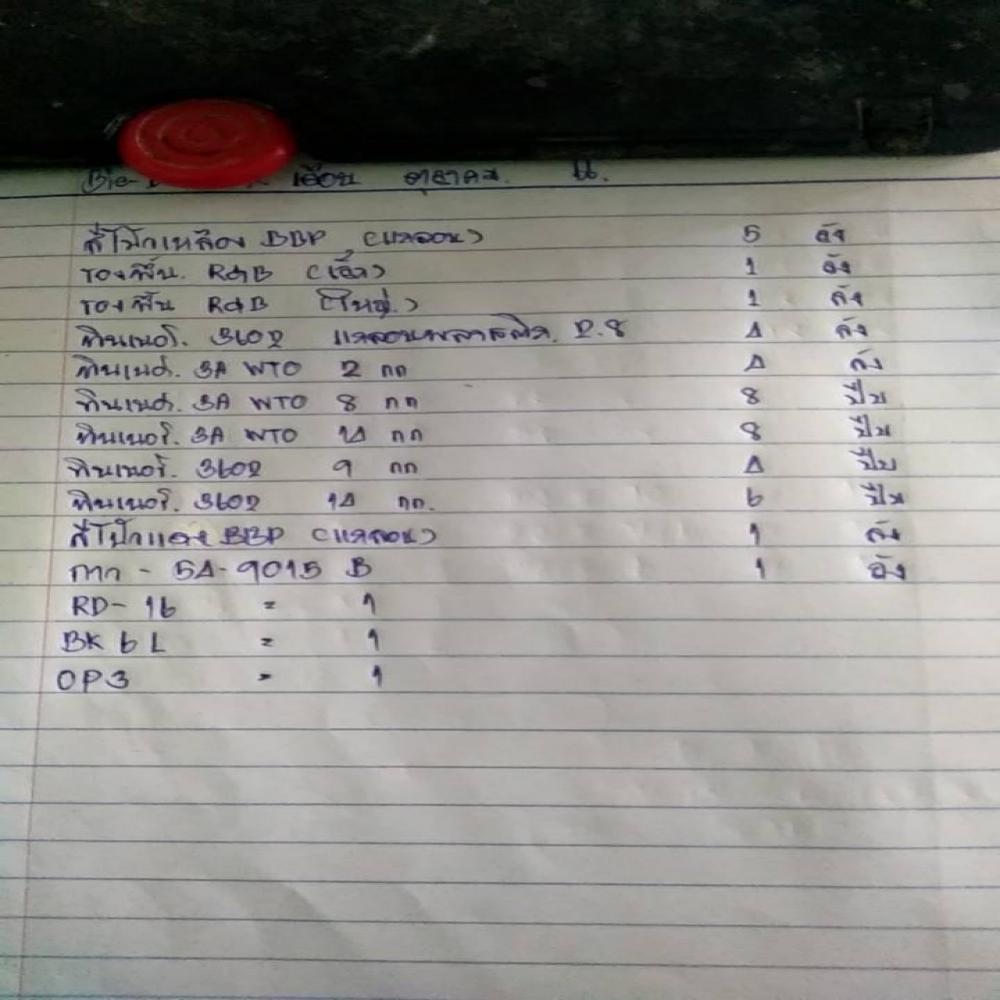 เดือน ตุลาคม
สีโป๊วเหลือง BBP (แกลลอน) 5 ถัง
รองพื้น R&B (เล็ก) 1 ถัง
รองพื้น R&B (ใหญ่) 1 ถัง
ทินเนอร์. 3602 แกลลอนพลาสติก 2.8 4 ถัง
ทินเนอร์. 3A WTO 2 กก 4 ถัง
ทินเนอร์. 3A WTO 8 กก 8 ปี๊บ
ทินเนอร์. 3A WTO 14 กก 8 ปี๊บ
ทินเนอร์. 3602 9 กก 4 ปี๊บ
ทินเนอร์. 3602 14 กก. 6 ปี๊บ
สีโป๊วแดง BBP (แกลลอน) 1 ถัง
กาก - 54-9015 B 1 ถัง
RD-16 = 1
BK 6 L = 1
OP3 = 1